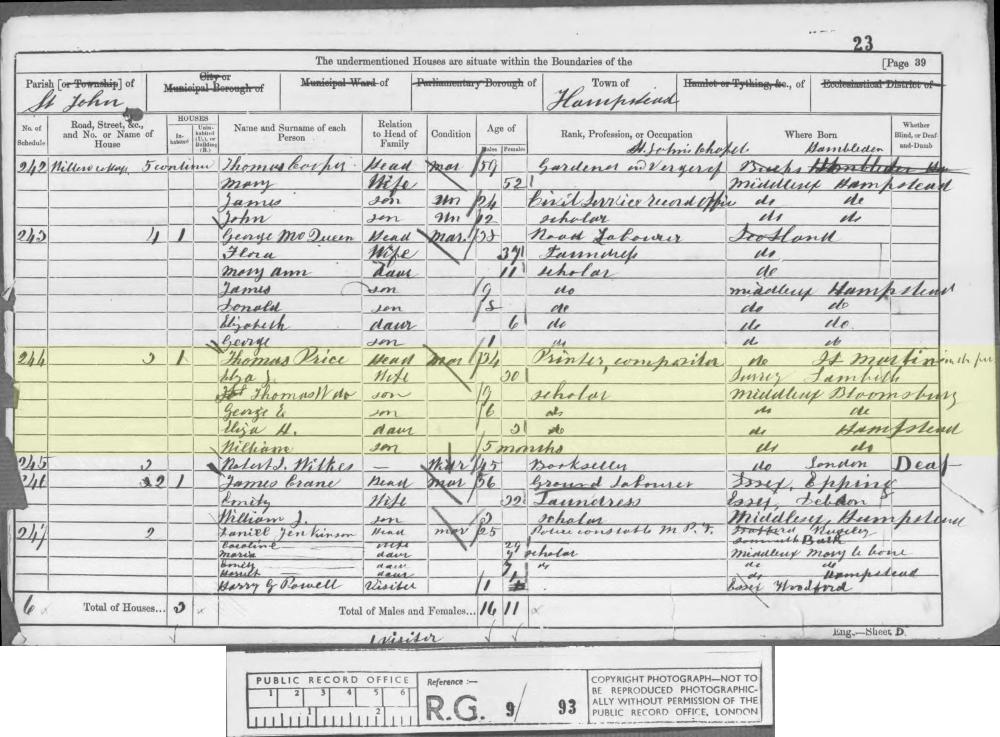 23
The undermentioned Houses are situate within the Boundaries of the
[Page 39
Parish [or Township] of St John
City or Municipal Borough of
Municipal Ward of
Parliamentary Borough of
Town of Hampstead
Hamlet or Tything, &c., of
Ecclesiastical District of
No. of Schedule
Road, Street, &c., and No. or Name of House
HOUSES
Inhabited
Uninhabited (U.), or Building (B.)
Name and Surname of each Person
Relation to Head of Family
Condition
Age of
Males Females
Rank, Profession, or Occupation
Where Born
Whether Blind, or Deaf-and-Dumb
St. Johns Chapel Hambleden
242 5 Thomas Cooper Head Mar 59 Gardener Verger of Bucks
Mary Wife 52 Middlesex Hampstead
James son Un 24 Civil Service record office do do
John son Un 12 scholar do do
243 4 1 George McQueen Head Mar. 38 Road Labourer Scotland
Flora Wife 37 Laundress do
Mary Ann daur 11 scholar do
James son 9 do Middlesex Hampstead
Donald son 8 do do do
Elizabeth daur 6 do do do
George son 1 do do
244 3 1 Thomas Price Head Mar 34 Printer, compositor do St Martin in the
Eliza J. Wife 30 Surrey Lambeth
Thomas W do son 9 scholar Middlesex Bloomsbury
George E son 6 do do do
Eliza H. daur 3 do do Hampstead
William son 5 months do do
245 3 Robert J. Wilkes – Widr 45 Bookseller do London Deaf
246 2 1 James Crane Head Mar 36 Ground Labourer Essex, Epping
Emily Wife 32 Laundress Essex
William J. son 3 scholar Middlesex, Hampstead
247 2 Daniel Jenkinson Head Mar 25 Police constable M.P.F. Rugeley
Caroline wife 29 Bath
Maria daur scholar Middlesex Mary le bone
Emily daur do do do
Harriet daur 1 do Hampstead
Harry G Powell Visitor 1 Essex Woodford
6 Total of Houses... 3
Total of Males and Females... 16 11
1 Visitor
Eng.—Sheet D.
PUBLIC RECORD OFFICE
1 2 3 4 5 6
1 2
Reference :—
R.G. 9/ 93
COPYRIGHT PHOTOGRAPH—NOT TO
BE REPRODUCED PHOTOGRAPHIC-
ALLY WITHOUT PERMISSION OF THE
PUBLIC RECORD OFFICE, LONDON